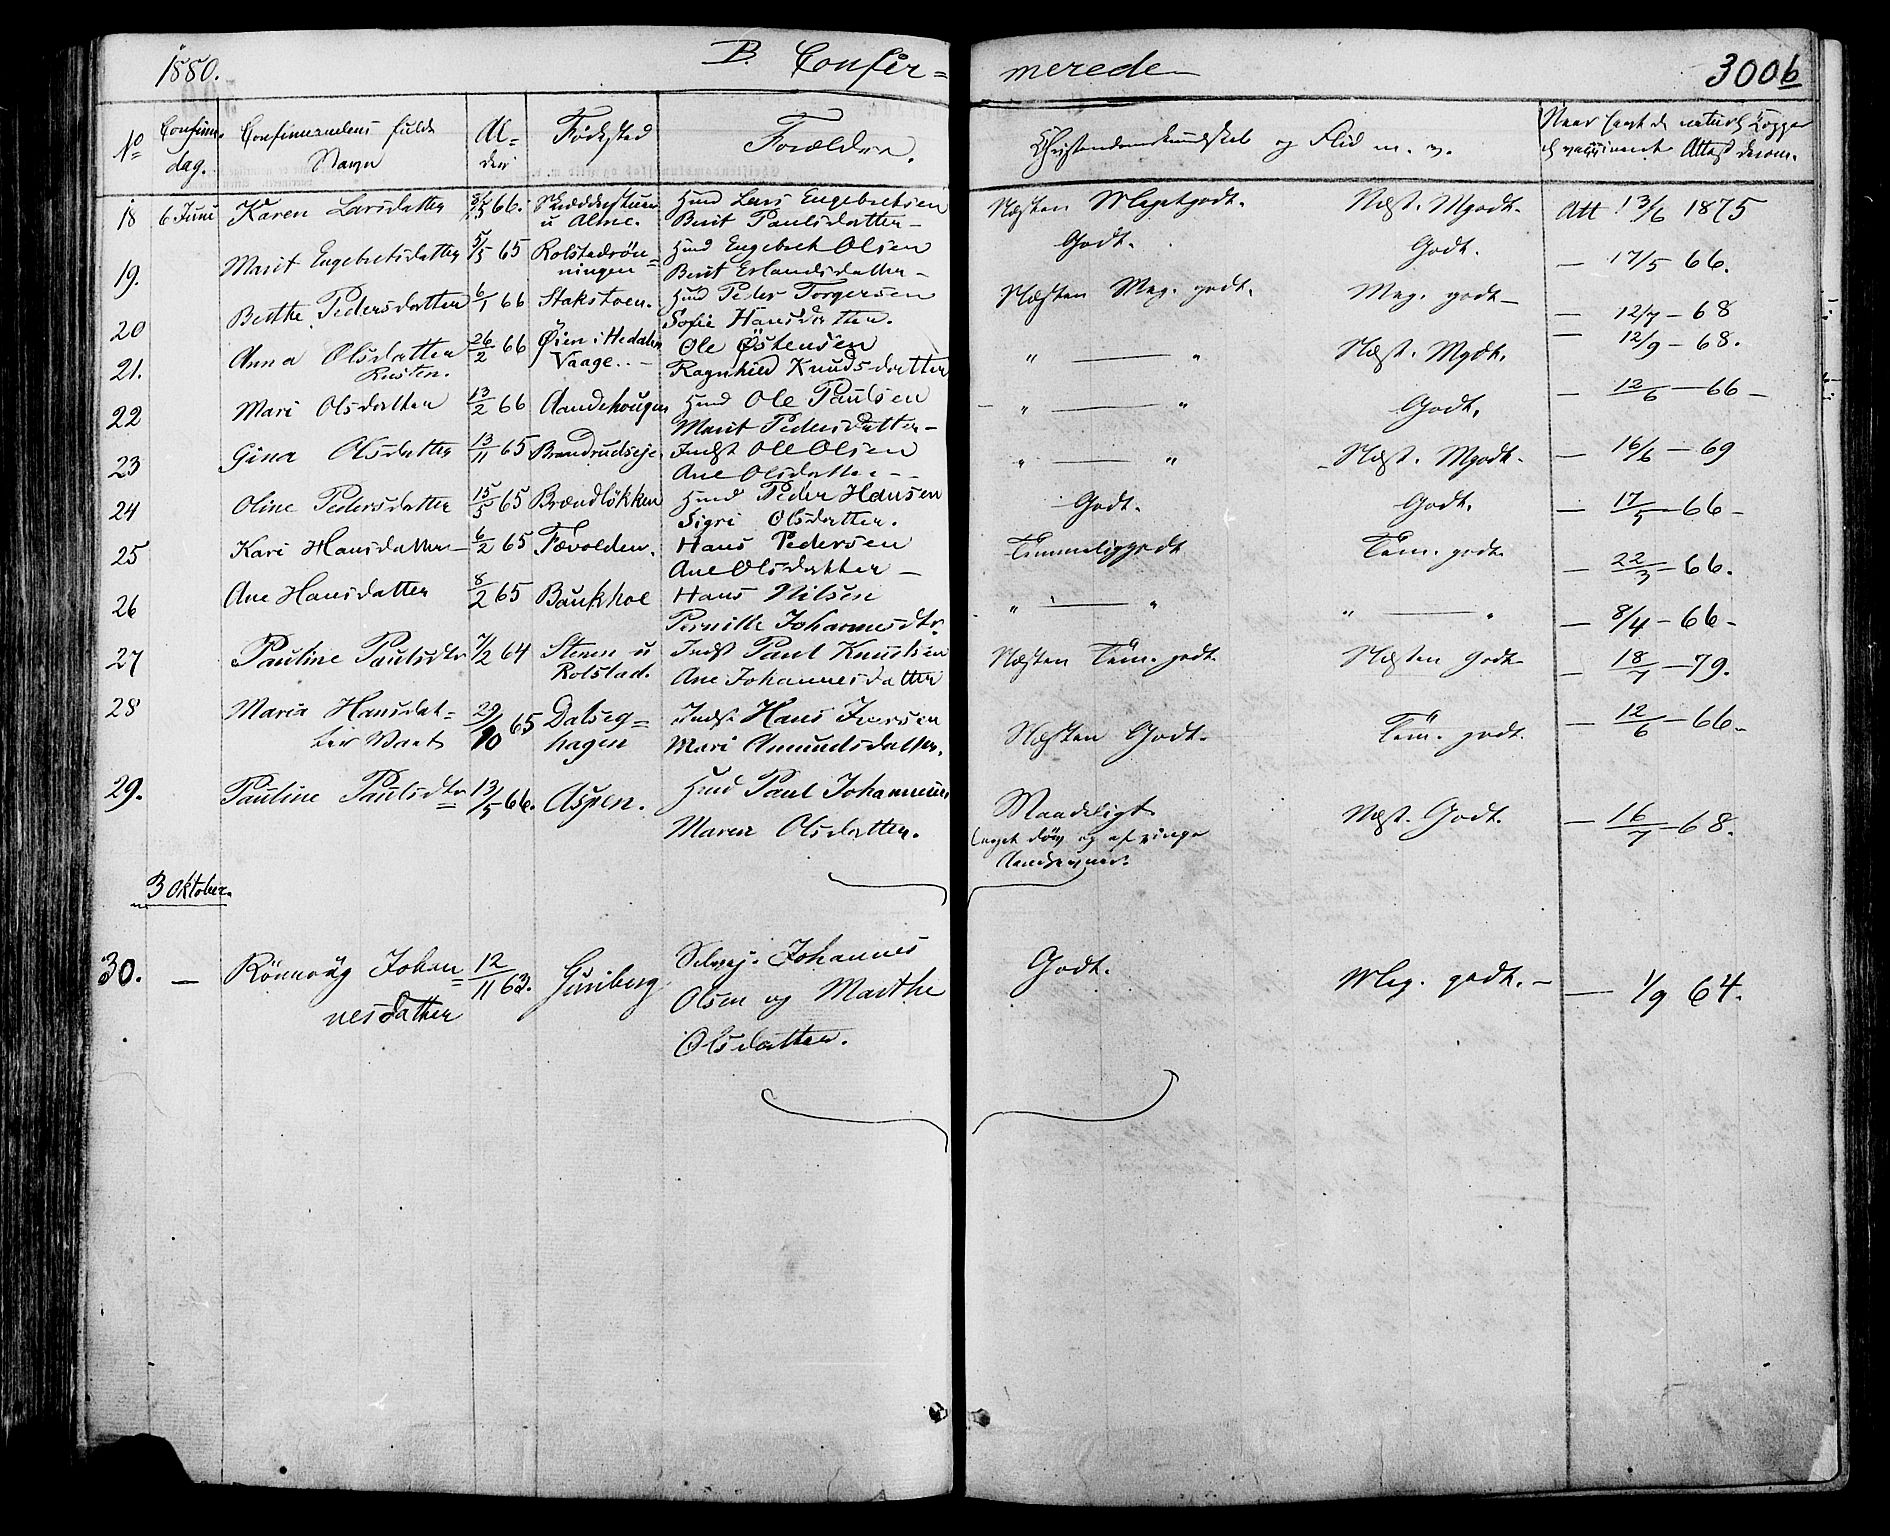 1880. B. Confir= merede 300b
No Confirm. dag. Confirmandens fulde Navn Al- der Fødested Forældre. Christendomskundskab og Flid m. v. Naar havt de naturl. Kopper el. vaccineret Attest derom.
18 6 Juni Karen Larsdatter 66. u Alme. Huusmd Lars Engebretsen Næsten Megetgodt. Næst. Mgodt. Att 13/6 1875
Berit Paulsdatter
19. Marit Engebretsdatter 5/5 65 Rolstadrön= ningen Hmd Engebret Olsen Godt. Godt. — 17/5 66.
Berit Erlandsdatter
20 Berthe Pedersdatter 6/1 66 Stakstoen. Hmd Peder Torgersen Næsten Meg. godt. Meg. godt — 12/7 – 68
Sofie Hansdatter.
21. Anna Olsdatter Rusten. 26/2 66 Øien i Hedalen Vaage. – Ole Östensen " — " Næst. Mgdt. — 12/9 – 68.
Ragnhild Knudsdatter
22 Mari Olsdatter 13/2 66 Aandehougen Hmd Ole Paulsen " — " Godt. — 12/6 – 66 –
Marit Pedersdatter –
23 Gina Olsdatter 13/11 65 Brandrudseje. Indst Ole Olsen " — " Næst. Mgodt. — 16/6 – 69
Ane Olsdatter –
24 Oline Pedersdatter 15/5 65 Brændløkken Hmd Peder Hansen Godt. Godt. — 17/5 – 66 –
Sigri Olsdatter.
25 Kari Hansdatter 6/2 65 Fævolden. Hans Pedersen Temmeliggodt Tem. godt. — 22/3 – 66.
Ane Olsdatter –
26 Ane Hansdatter 8/2 65 Baukhol Hans Nilsen " — " " — " — 8/4 – 66 –
Pernille Johannesdtr.
27 Pauline Paulsdtr 7/2 64 Stenen u Rolstad. Indst Paul Knudsen Næsten Tem. godt. Næsten Godt — 18/7 – 79.
Ane Johannesdatter
28 Maria Hansdat= ter 29/10 65 Dalseg= hagen Indst Hans Iversen Næsten Godt. Tem. godt. — 12/6 – 66 –
Mari Amundsdatter.
29. Pauline Paulsdtr 13/5 66. Aspen. Hmd Paul Johannesen Maadeligt Næst. Godt. — 16/7 – 68.
Maren Olsdatter. meget døv og af ringe
Aandsevner.
3 Oktober.
30. — Rönnoug Johan= nesdatter 12/11 63. Guriberg Selvej. Johannes Godt. Meg. godt. — — 1/9 64.
Olsen og Marthe
Olsdatter.